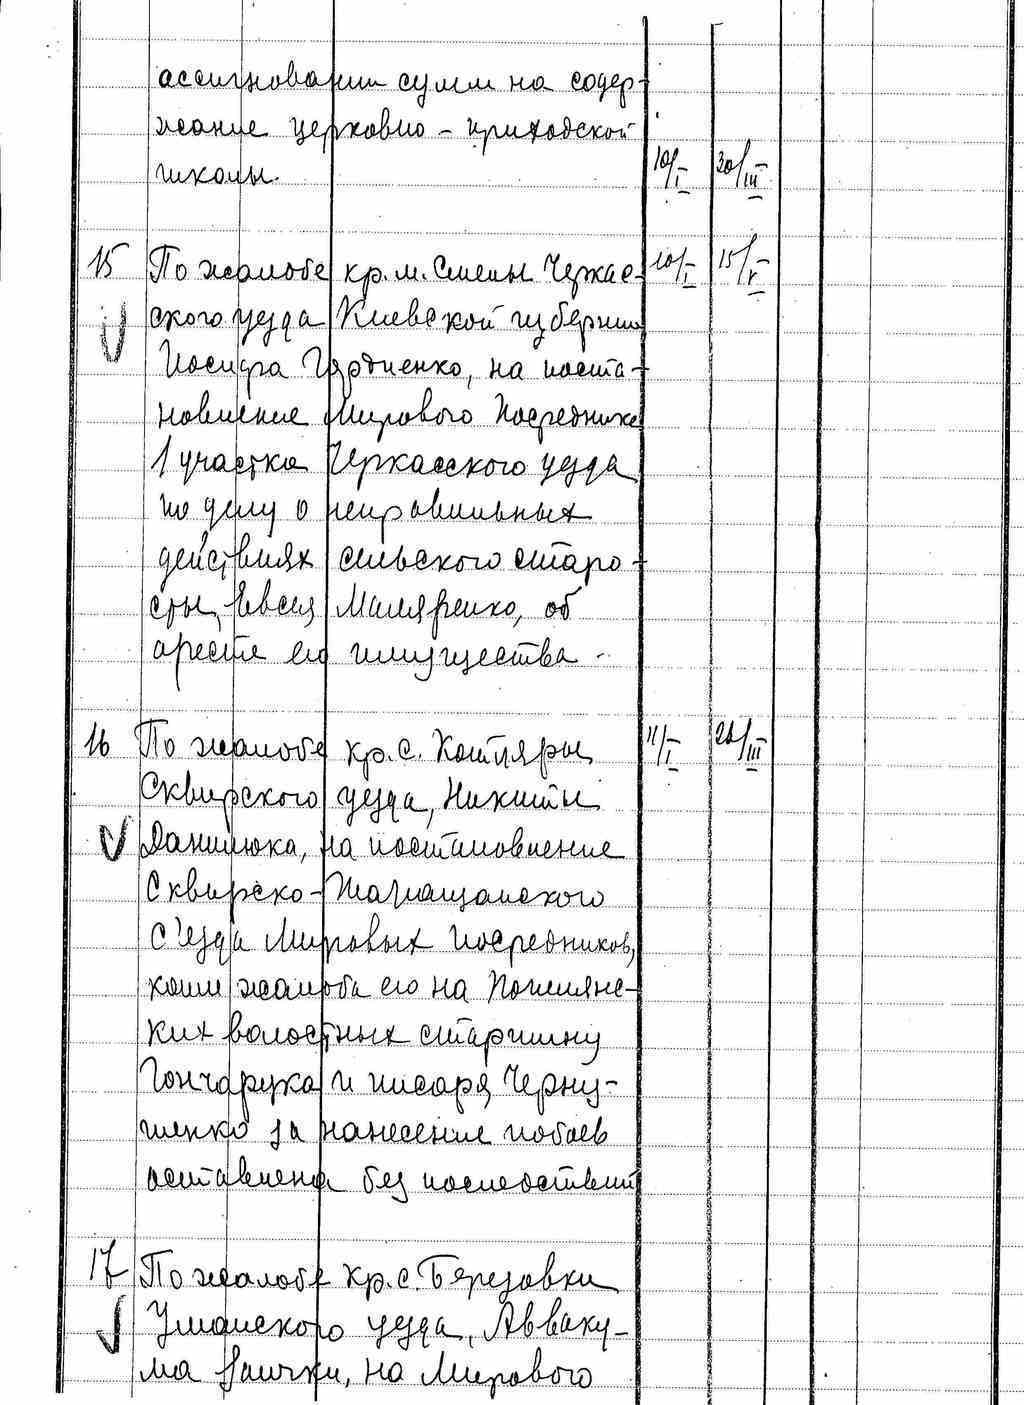 ассигновании сумм на содер-
жание церковно-приходской
школы. 10/I 30/III
15 По жалобе кр. м. Смелы Черкас- 10/I 15/V
ского уезда Киевской губернии
Иосифа Гордиенко, на поста-
новление Мирового Посредника
1 участка Черкасского уезда
по делу о неправильных
действиях сельского старо-
сты, Евсея Маляренко, об
аресте его имущества.
16 По жалобе кр. с. Котляры 11/I III
Сквирского уезда, Никиты
Данилюка, на постановление
Сквирско-Таращанского
с'езда Мировых Посредников,
коим жалоба его на
ких волостных старшину
Гончарука и писаря Черну-
шенко за нанесение побоев
оставлена без последствий
17 По жалобе кр. с. Березовки
Уманского уезда, Авваку-
ма Заички, на Мирового